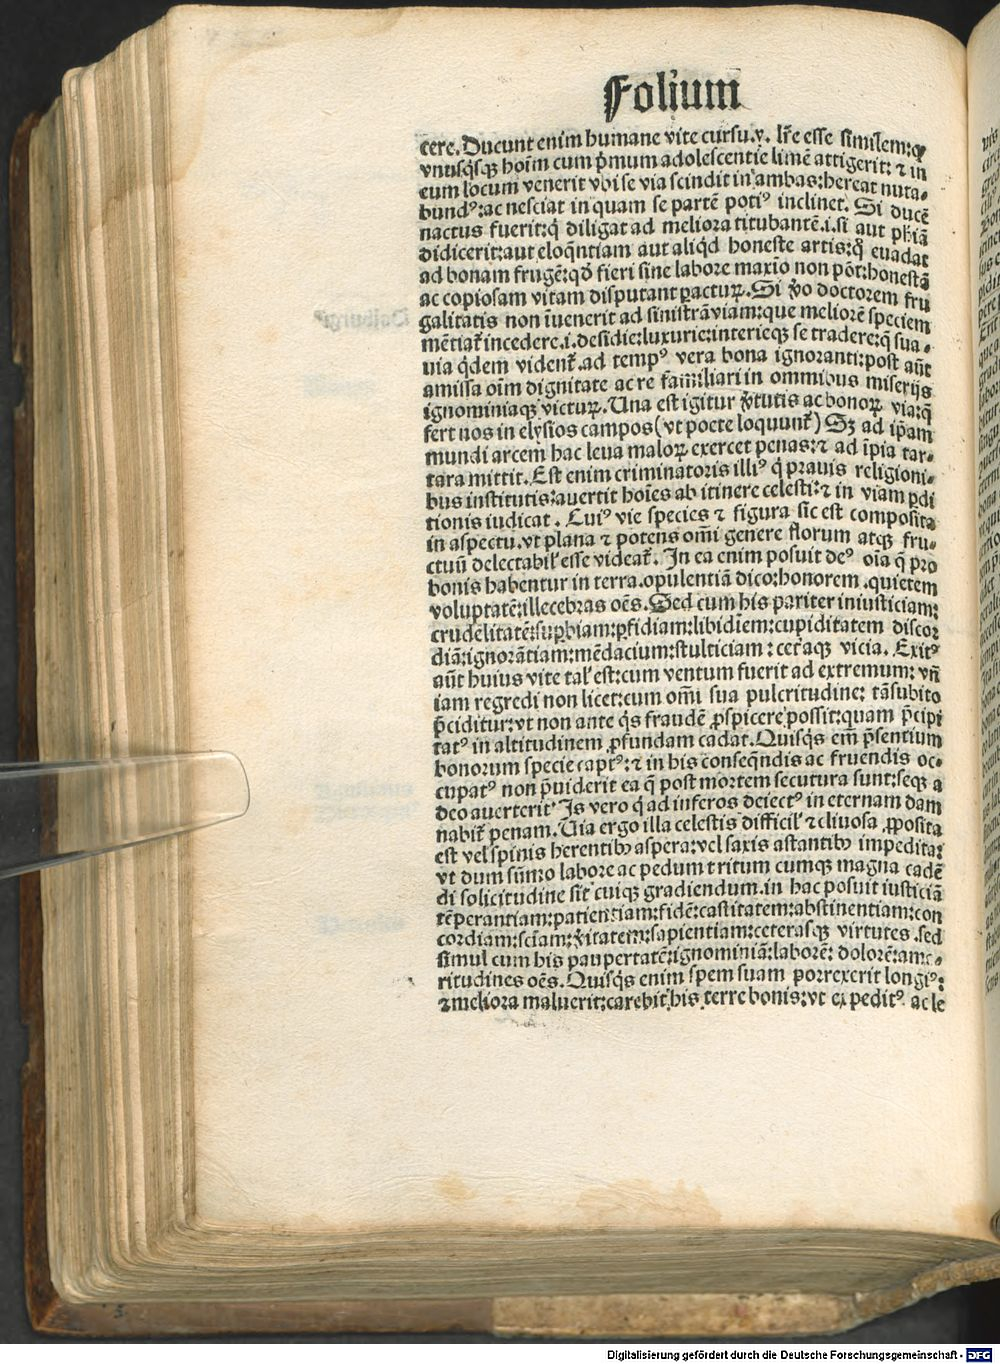 Folium
cere. Ducunt enim humane vite cursū.y. lr̄e esse similem:qꝫ
vnusq̄sqꝫ hoīm cum p̄mum adolescentie limē attigerit: ⁊ in
eum locum venerit vbi se via scindit in ambas:hereat nuta⸗
bundꝰ:ac nesciat in quam se partē potiꝰ inclinet. Si ducē
nactus fuerit:q̇ diligat ad meliora titubantē.i.si aut phīaꝫ
didicerit:aut eloq̄ntiam aut aliq̇d honeste artis:q̄ euadat
ad bonam frugē:qd̄ fieri sine labore maxīo non pōt:honestā
ac copiosam vitam disputant ꝑacturꝝ. Si v̄o doctorem fru
galitatis non īuenerit ad sinistrā viam:que meliorē speciem
mētiat̄ incedere.i.desidie:luxurie:inertieqꝫ se tradere:q̄ sua⸗
uia q̇dem vident̄.ad tempꝰ vera bona ignoranti:post aūt
amissa oīm dignitate ac re familiari in ommibus miserijs
ignominiaqꝫ victurꝝ. Una est igitur v̄tutis ac bonoꝝ via:q̄
fert nos in elysios campos(vt poete loquunt̄) Sꝫ ad ip̄am
mundi arcem hac leua maloꝝ exercet penas:⁊ ad īpia tar⸗
tara mittit. Est enim criminatoris illiꝰ q̇ prauis religioni⸗
bus institutis:auertit hoīes ab itinere celesti:⁊ in viam ꝑdi
tionis iudicat. Cuiꝰ vie species ⁊ figura sic est composita
in aspectu.vt plana ⁊ potens om̄i genere florum atqꝫ fru⸗
ctuū delectabil̓ esse videat̄. In ea enim posuit deꝰ oīa q̄ pro
bonis habentur in terra.opulentiā dico:honorem.quietem
voluptatē:illecebras oēs. Sed cum his pariter iniusticiam:
crudelitatē:suꝑbiam:ꝑfidiam:libidīem:cupiditatem discor
diā:ignorātiam:mēdacium:stulticiam: ceťaqꝫ vicia. Exitꝰ
aūt huius vite tal̓ est:cum ventum fuerit ad extremum: vn̄
iam regredi non licet:cum om̄i sua pulcritudine: tā subito
p̄ciditur:vt non ante q̇s fraudē ꝓspicere possit:quam p̄cipi
tatꝰ in altitudinem ꝓfundam cadat. Quisq̇s em̄ p̄sentium
bonorum specie captꝰ:⁊ in his conseq̄ndis ac fruendis oc⸗
cupatꝰ non p̄uiderit ea q̄ post mortem secutura sunt:seqꝫ a
deo auerterit Is vero q̇ ad inferos deiectꝰ in eternam dam
nabit̄ penam. Uia ergo illa celestis difficil̓ ⁊ cliuosa ꝓposita
est vel spinis herentibꝰ aspera:vel saxis astantibꝰ impedita:
vt dum sūmo labore ac pedum tritum cumqꝫ magna cadē
di solicitudine sit cuiqꝫ gradiendum.in hac posuit iusticiā
tēperantiam:patientiam:fidē:castitatem:abstinentiam:con
cordiam:sciam̄:v̄itatem:sapientiam:ceterasqꝫ virtutes.sed
simul cum his paupertatē:ignominiā:laborē: dolorē:ama⸗
ritudines oēs. Quisq̇s enim spem suam porrexerit longiꝰ:
⁊ meliora maluerit:carebit his terre bonis:vt expeditꝰ ac le
Digitalisierung gefördert durch die Deutsche Forschungsgemeinschaft - DFG